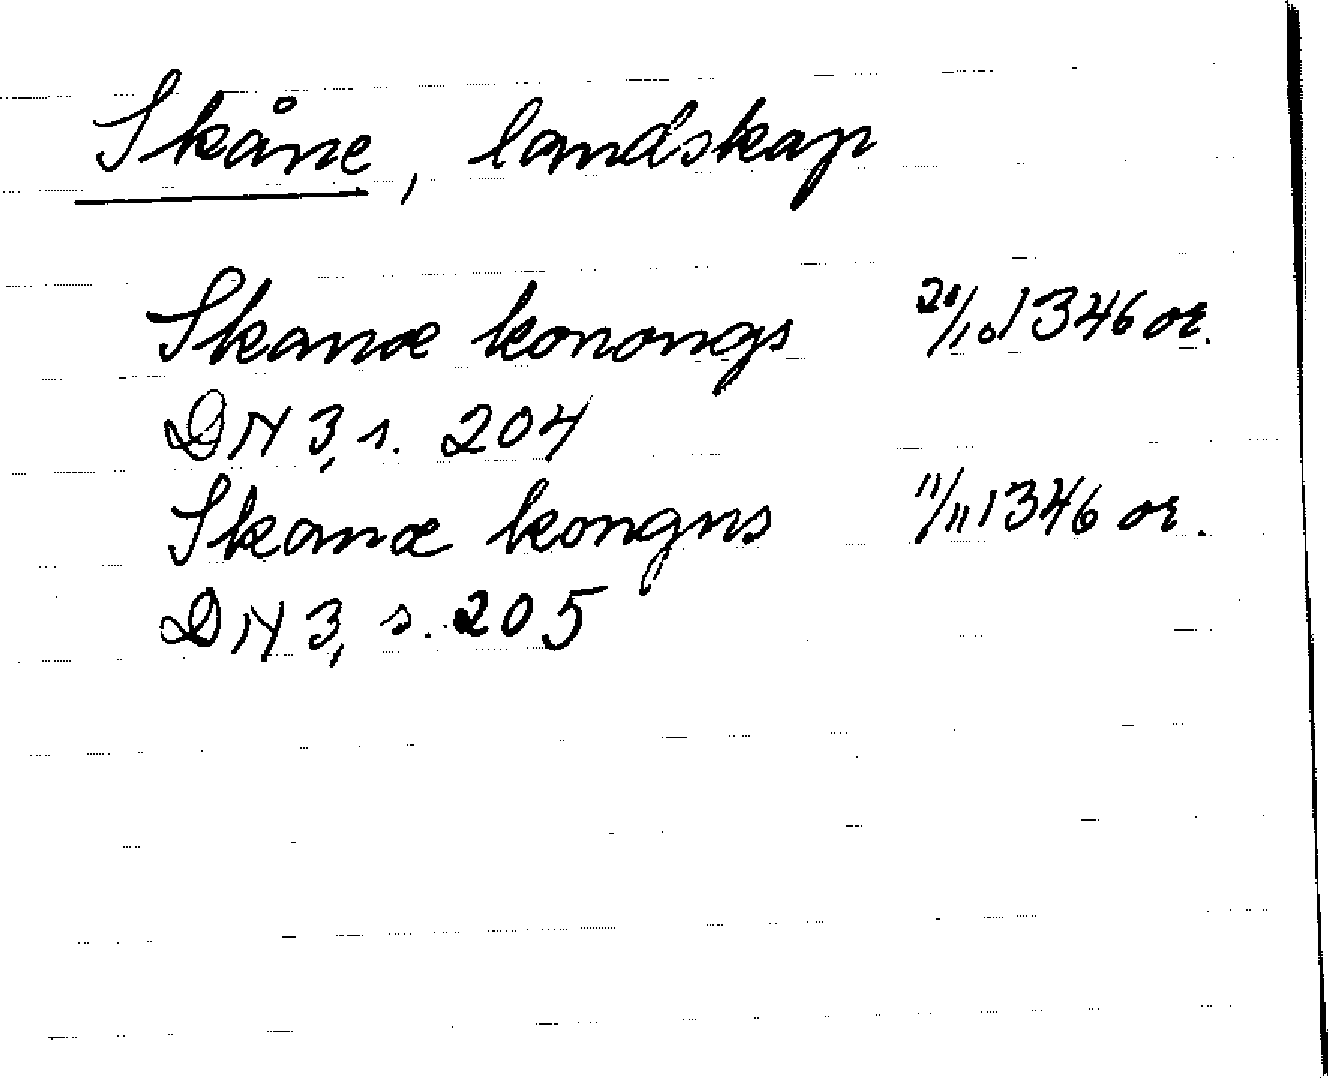 Skåne, landskap
Skanæ konongs 20/10 1346 or.
DN 3, s. 204
Skanæ kongns 11/11 1346 or.
DN 3, s. 205